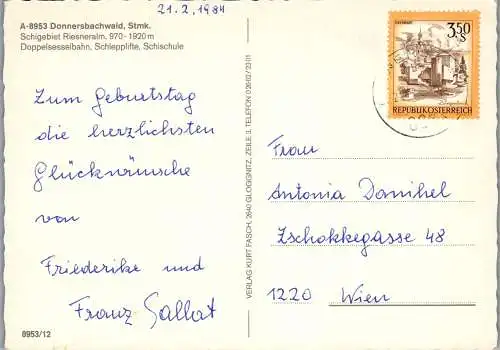 21.2.1984
A-8953 Donnersbachwald, Stmk.
Schigebiet Riesneralm, 970 - 1920 m
Doppelsesselbahn, Schlepplifte, Schischule
Zum Geburtstag
die herzlichsten
Glückwünsche
von
Friederike und
Franz Sallat
8953/12
VERLAG KURT FASCH, 2640 GLOGGNITZ, ZEILE 3, TELEFON 0 26 62 / 23 01
3.50
S
REPUBLIK ÖSTERREICH
Frau
Antonia Danihel
Zschokkegasse 48
1220 Wien